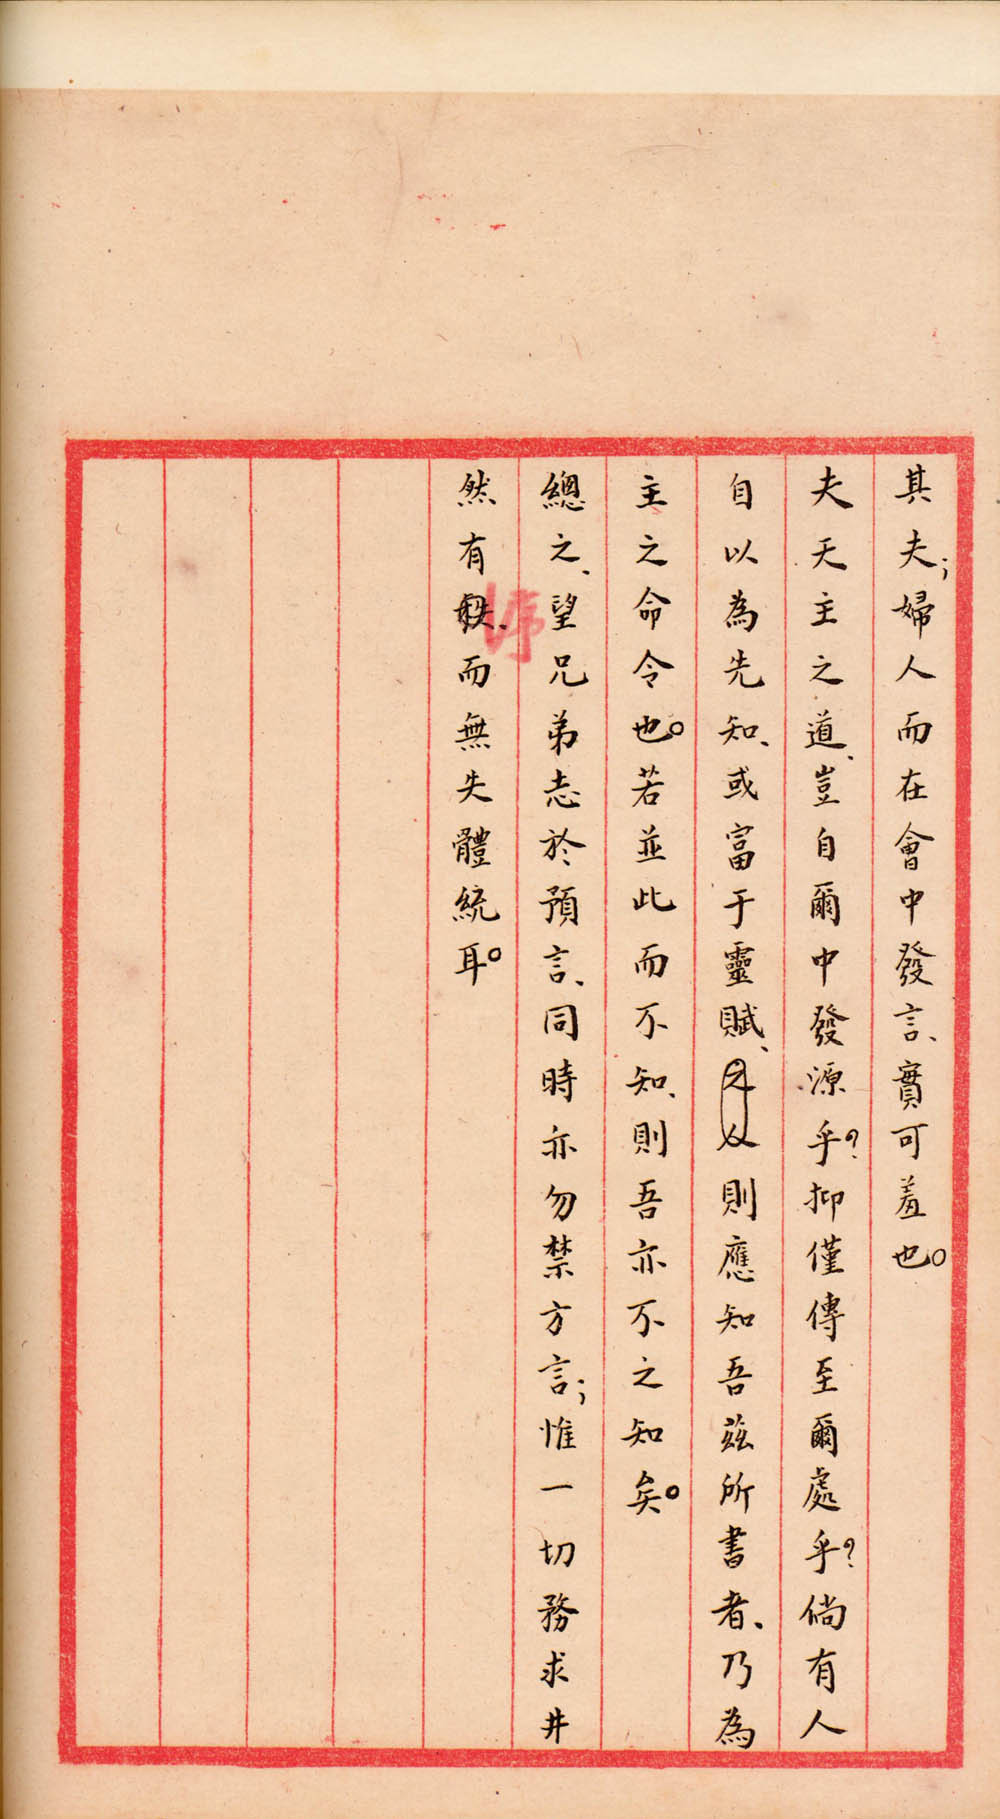 其夫；婦人而在會中發言、實可羞也。
夫天主之道、豈自爾中發源乎？抑僅傳至爾處乎？倘有人
自以為先知、或富于靈賦、則應知吾茲所書者、乃為
主之命令也。若並此而不知、則吾亦不之知矣。
總之、望兄弟志於預言、同時亦勿禁方言；惟一切務求井
然有秩、而無失體統耳。
序